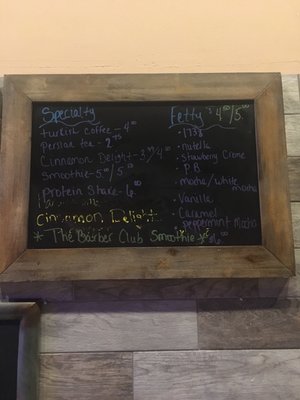 Specialty
turkish coffee - 4.00
Persian tea - 2.75
Cinnamon Delight - 3.75/4.50
Smoothie - 5.00/5.50
Protein Shake - 6.00
Cinnamon Delight
* The Barber Club Smoothie $6.00
Fetty $4.50/5.00
· 1738
· nutella
· Strawberry Creme
P.B.
· mocha/white
mocha
· Vanilla
· Caramel
peppermint Mocha